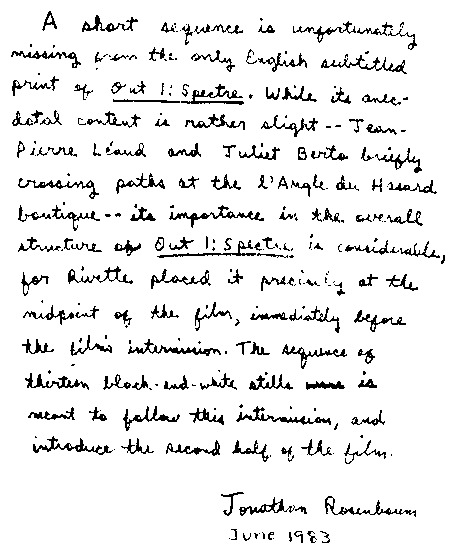 A short sequence is unfortunately
missing from the only English subtitled
print of Out 1: Spectre. While its anec-
dotal content is rather slight -- Jean-
Pierre Léaud and Juliet Berto briefly
crossing paths at the l'Angle du Hasard
boutique -- its importance in the overall
structure of Out 1: Spectre is considerable,
for Rivette placed it precisely at the
midpoint of the film, immediately before
the film's intermission. The sequence of
thirteen black-and-white stills is
meant to follow this intermission, and
introduce the second half of the film.
Jonathan Rosenbaum
June 1983